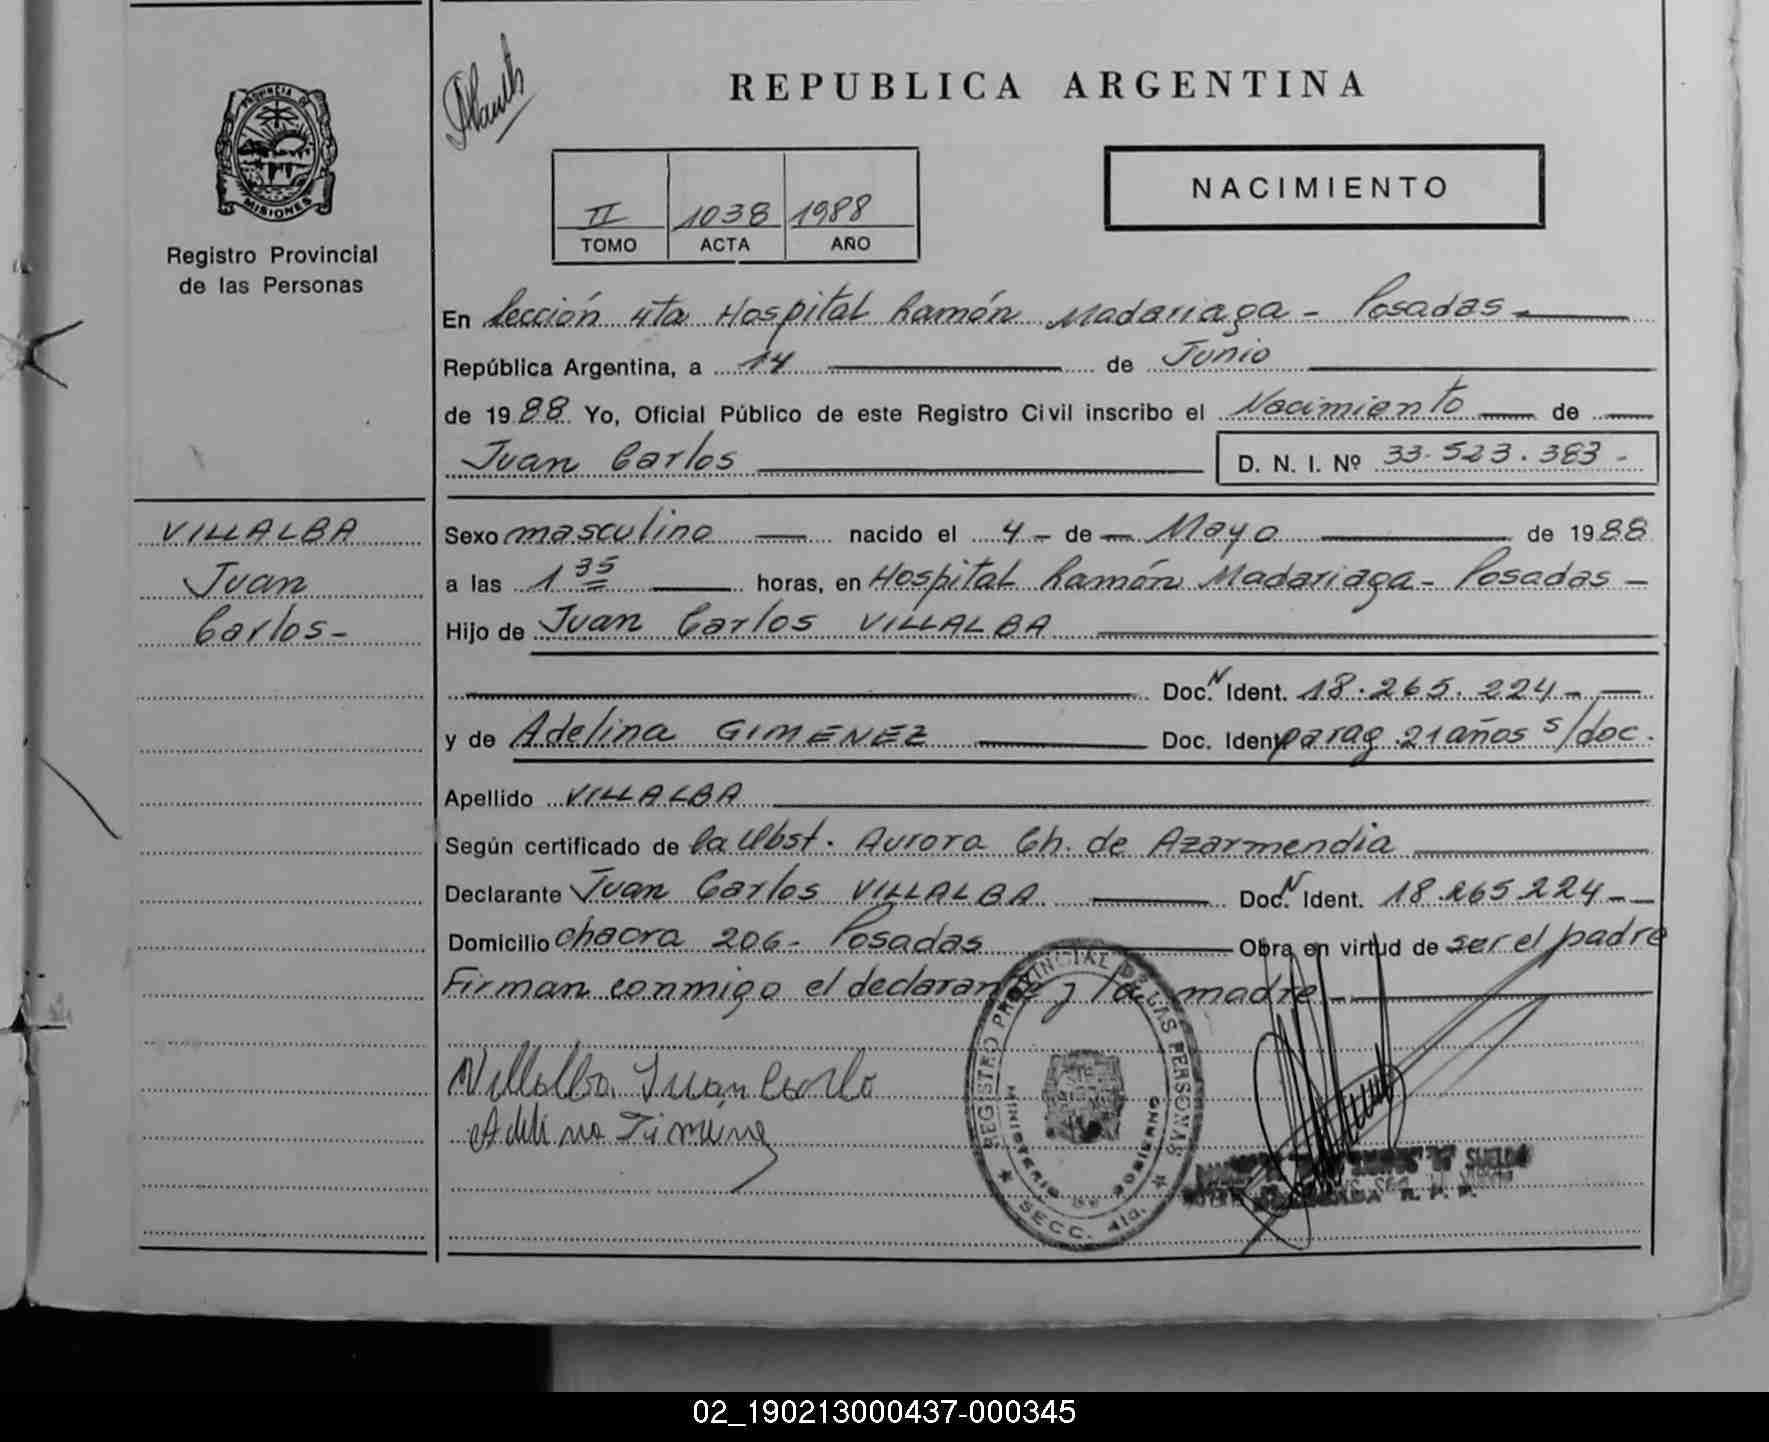 PROVINCIA DE
MISIONES
Registro Provincial
de las Personas
VILLALBA
Juan
Carlos-
REPUBLICA ARGENTINA
NACIMIENTO
II 1038 1988
TOMO ACTA AÑO
En Sección 4ta Hospital Ramón Madariaga - Posadas -
República Argentina, a 14 de Junio
de 1988 Yo, Oficial Público de este Registro Civil inscribo el Nacimiento de
Juan Carlos D. N. I. Nº 33.523.383 -
Sexo masculino nacido el 4 - de - Mayo de 1988
a las 1 35 horas, en Hospital Ramón Madariaga - Posadas -
Hijo de Juan Carlos VILLALBA
Doc. N Ident. 18.265.224 -
y de Adelina GIMENEZ Doc. Ident parag 21 años s/doc.
Apellido VILLALBA
Según certificado de la Obst. Aurora Ch. de Azarmendia
Declarante Juan Carlos VILLALBA Doc. N Ident. 18.265.224 -
Domicilio chacra 206 - Posadas Obra en virtud de ser el padre
Firman conmigo el declarante y la madre -
Villalba Juan Carlo
Adelina Jimenez
REGISTRO PROVINCIAL DE LAS PERSONAS
MINISTERIO DE GOBIERNO
SECC. 4ta.
02_190213000437-000345